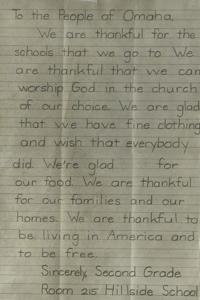 To the People of Omaha,
We are thankful for the
schools that we go to. We
are thankful that we can
worship God in the church
of our choice. We are glad
that we have fine clothing
and wish that everybody
did. We're glad for
our food. We are thankful
for our families and our
homes. We are thankful to
be living in America and
to be free.
Sincerely, Second Grade
Room 215 Hillside School